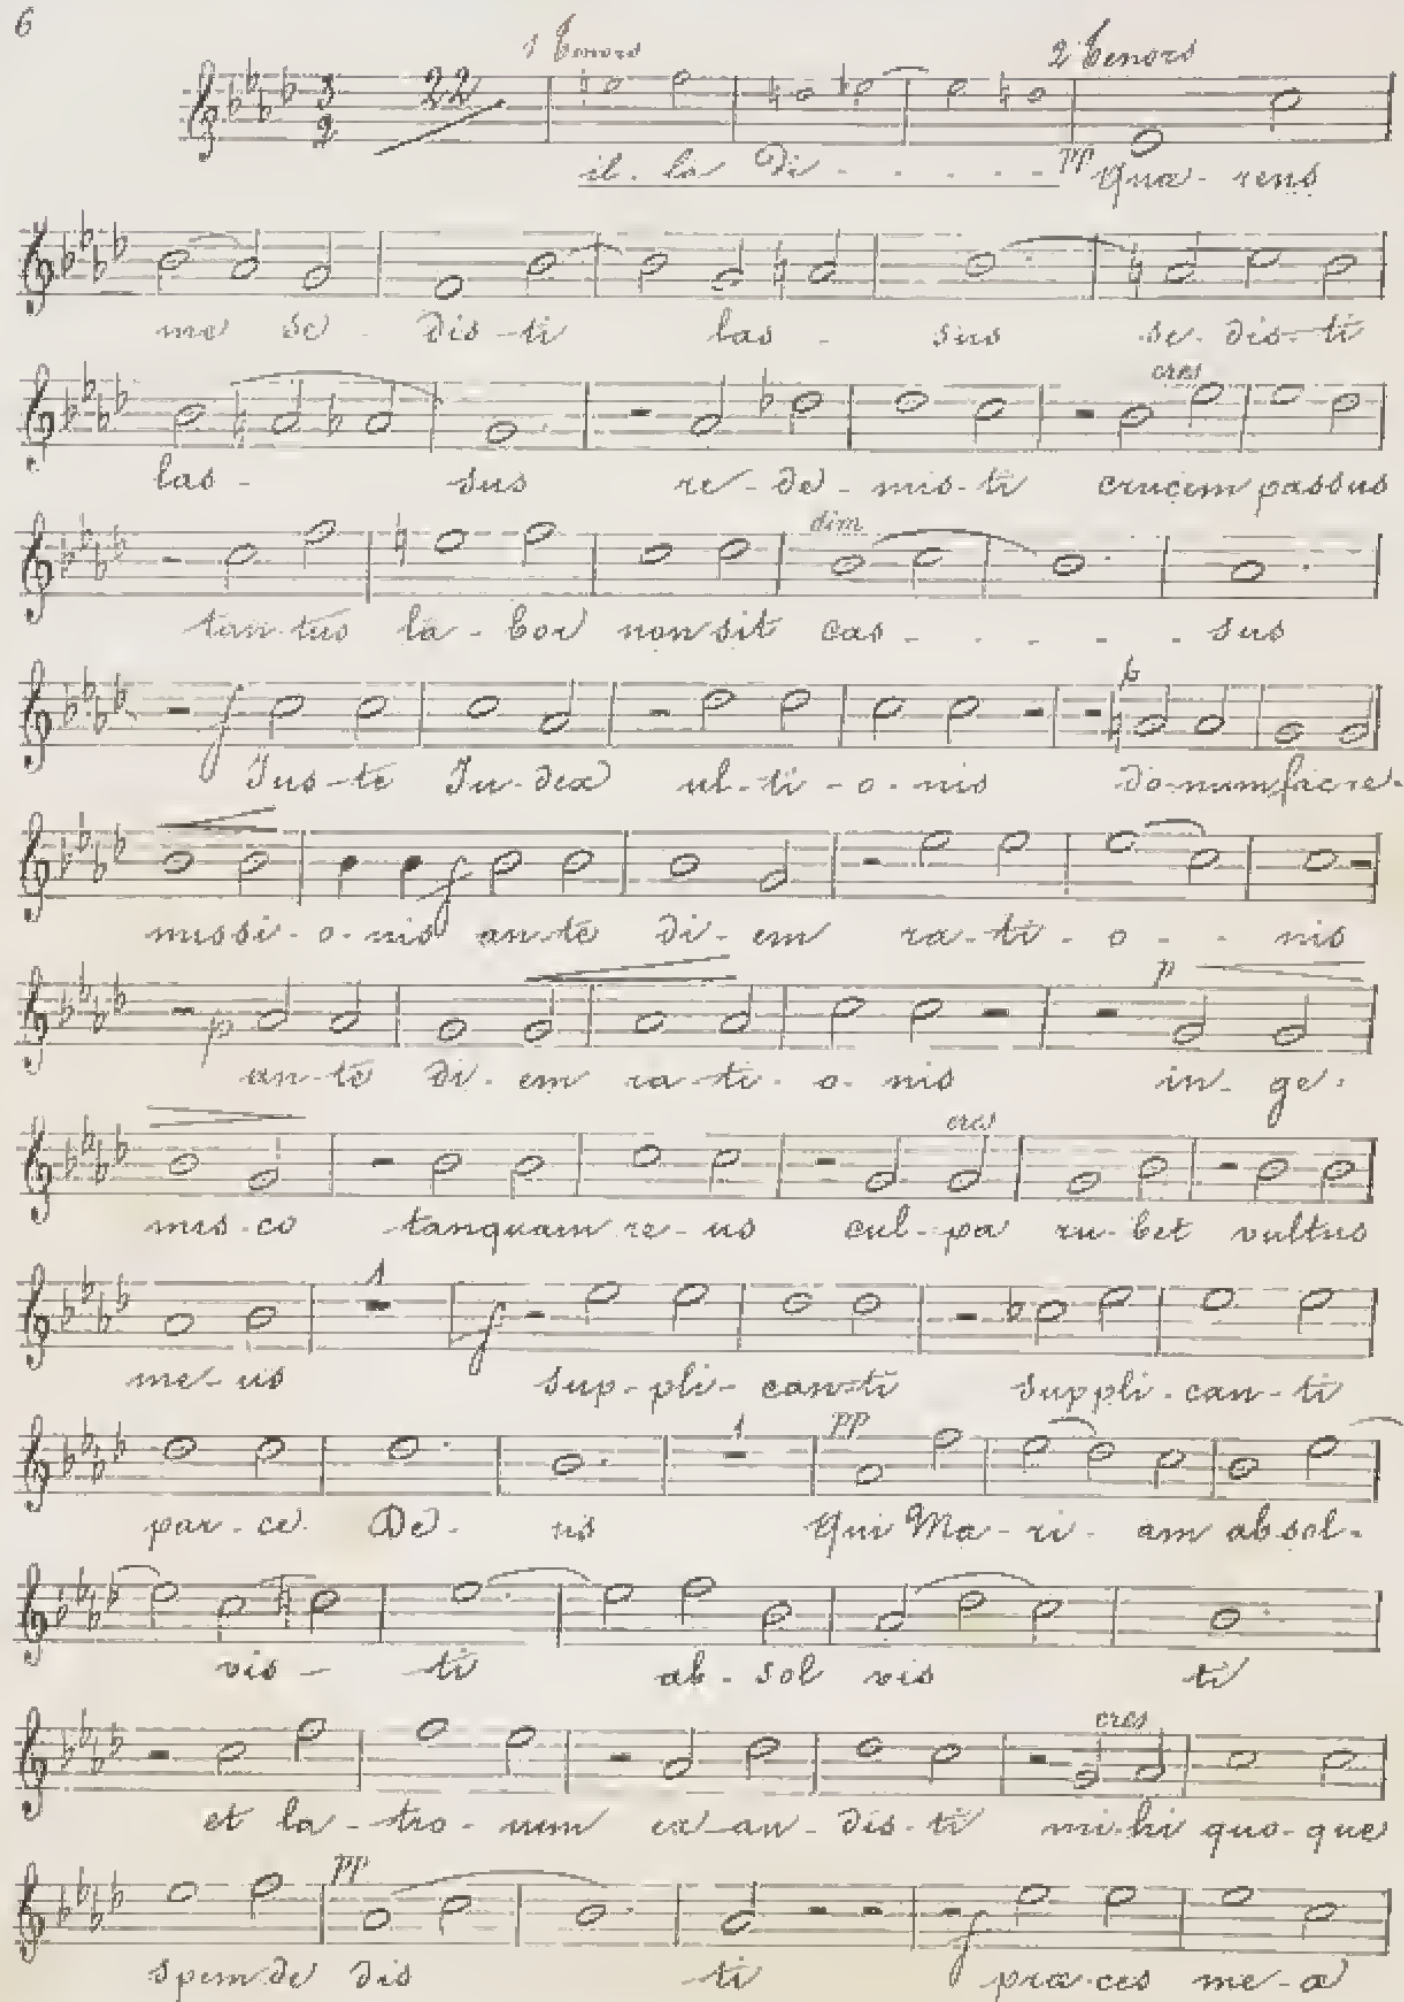 6
1 Tenors 2 Tenors
3 2 22
il - la Di - - - - - pp Quæ - rens
me se - dis - ti las - sus se - dis - ti
cres
las - sus re - de - mis - ti crucem passus
dim
tan - tus la - bor non sit cas - - - - - sus
p
f
Jus - te Ju - dex ul - ti - o - nis do - num fac re -
f
missi - o - nis an - te di - em ra - ti - o - - nis
p
p
an - te di - em ra - ti - o - nis in - ge -
cres
mis - co tanquam re - us cul - pa ru - bet vultus
1
f
me - us sup - pli - can - ti suppli - can - ti
1 pp
par - ce De - us Qui Ma - ri - am ab sol -
vis - ti ab - sol vis ti
cres
et la - tro - num ex - au - dis - ti mi - hi quo - que
pp
f
spem de dis ti præ - ces me - a